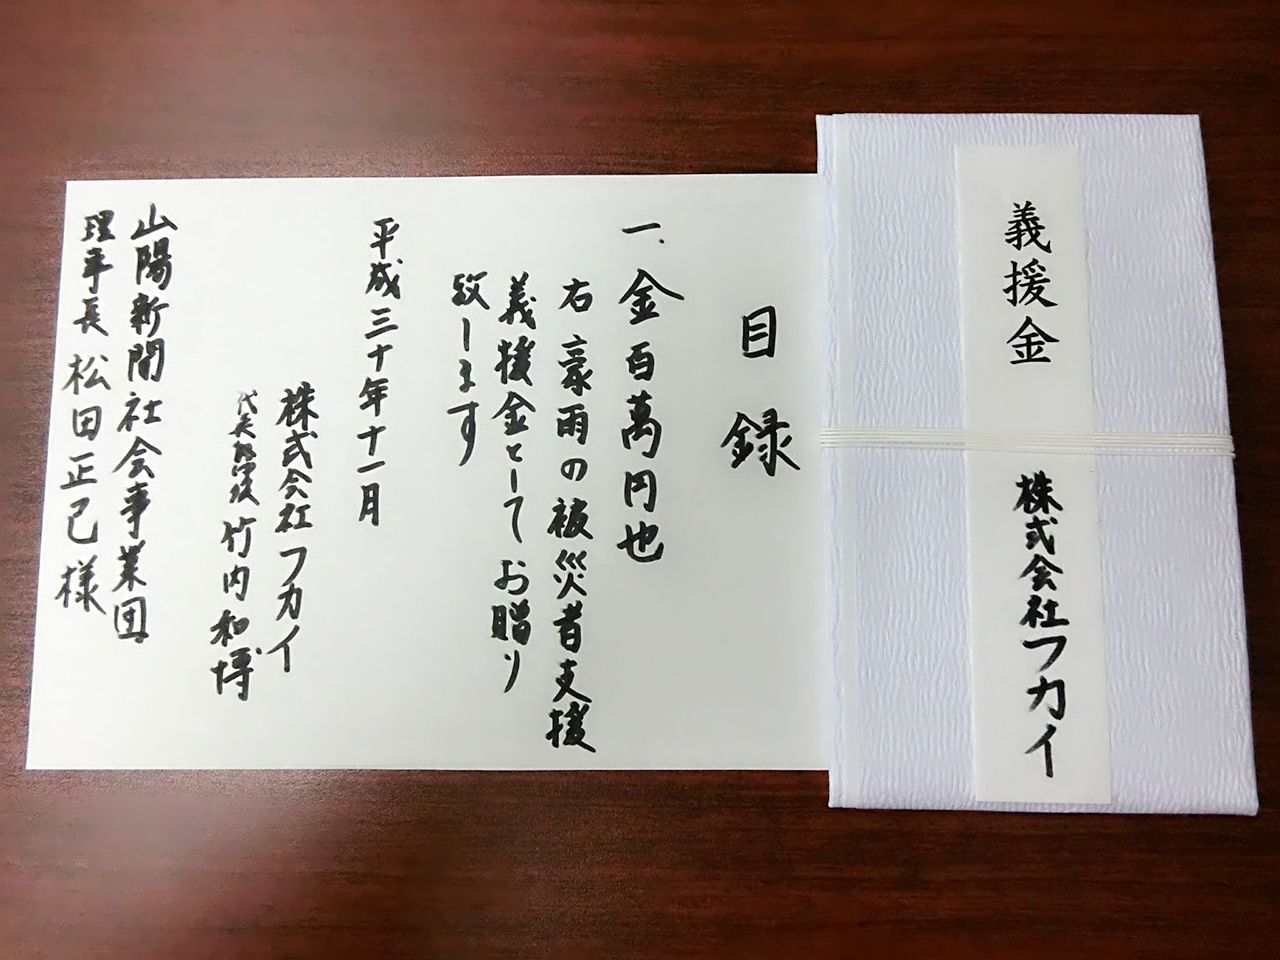 義援金
株式会社フカイ
目録
一、金百萬円也
右豪雨の被災者支援
義援金としてお贈り
致します
平成三十年十一月
株式会社フカイ
代表取締役 竹内和博
山陽新聞社会事業団
理事長 松田正己様